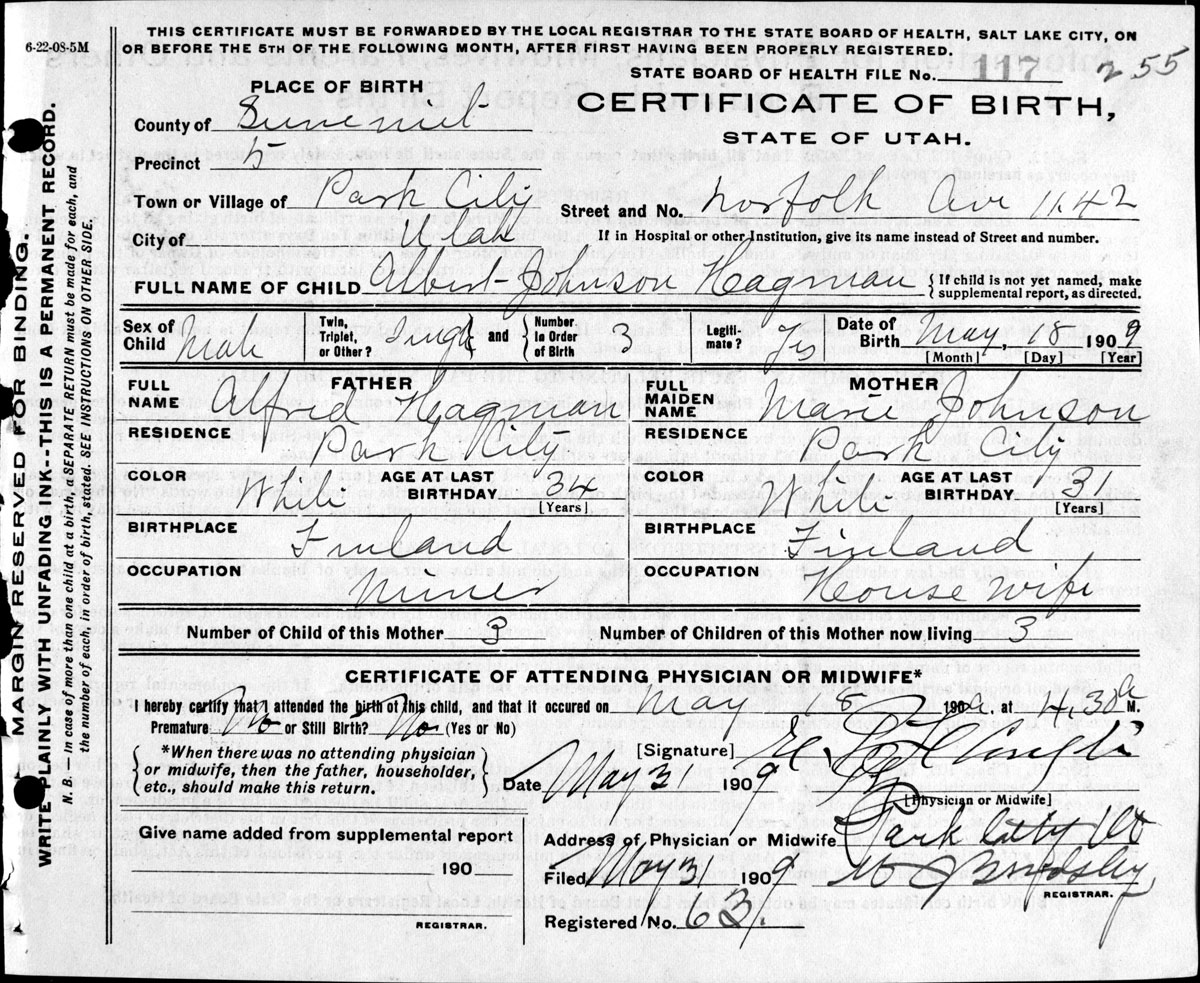 6-22-08-5M
THIS CERTIFICATE MUST BE FORWARDED BY THE LOCAL REGISTRAR TO THE STATE BOARD OF HEALTH, SALT LAKE CITY, ON
OR BEFORE THE 5TH OF THE FOLLOWING MONTH, AFTER FIRST HAVING BEEN PROPERLY REGISTERED.
STATE BOARD OF HEALTH FILE No. 117 255
PLACE OF BIRTH
CERTIFICATE OF BIRTH,
STATE OF UTAH.
County of Summit
Precinct 5
Town or Village of Park City Street and No. Norfolk Ave 1142
City of Utah If in Hospital or other Institution, give its name instead of Street and number.
FULL NAME OF CHILD Albert Johnson Hagman { If child is not yet named, make supplemental report, as directed.
Sex of Child Male Twin, Triplet, or Other? Single and Number in Order of Birth 3 Legiti-mate? Yes Date of Birth May, 18 1909
[Month] [Day] [Year]
FATHER MOTHER
FULL NAME Alfred Hagman FULL MAIDEN NAME Marie Johnson
RESIDENCE Park City RESIDENCE Park City
COLOR White AGE AT LAST BIRTHDAY 34 [Years] COLOR White AGE AT LAST BIRTHDAY 31 [Years]
BIRTHPLACE Finland BIRTHPLACE Finland
OCCUPATION Miner OCCUPATION House wife
Number of Child of this Mother 3 Number of Children of this Mother now living 3
CERTIFICATE OF ATTENDING PHYSICIAN OR MIDWIFE*
I hereby certify that I attended the birth of this child, and that it occured on May 18 190 at 4.30 a M.
Premature No or Still Birth? No (Yes or No)
*When there was no attending physician or midwife, then the father, householder, etc., should make this return.
[Signature]
Date May 31 1909
[Physician or Midwife]
Give name added from supplemental report
190
REGISTRAR.
Address of Physician or Midwife Park City Ut
Filed May 31 1909
REGISTRAR.
Registered No. 63.
MARGIN RESERVED FOR BINDING.
WRITE PLAINLY WITH UNFADING INK--THIS IS A PERMANENT RECORD.
N. B. In case of more than one child at a birth a SEPARATE RETURN must be made for each, and
the number of each, in order of birth, stated. SEE INSTRUCTIONS ON OTHER SIDE.